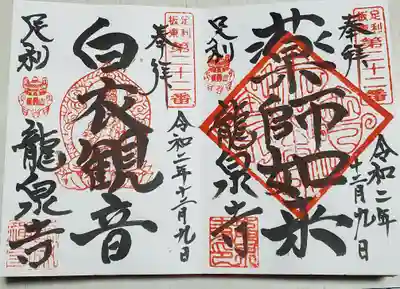 奉拝
足利
板東
第二十二番
薬師如来
令和二年
十二月九日
足利
龍泉寺
奉拝
足利
板東
第二十二番
白衣観音
令和二年十二月九日
足利
龍泉寺